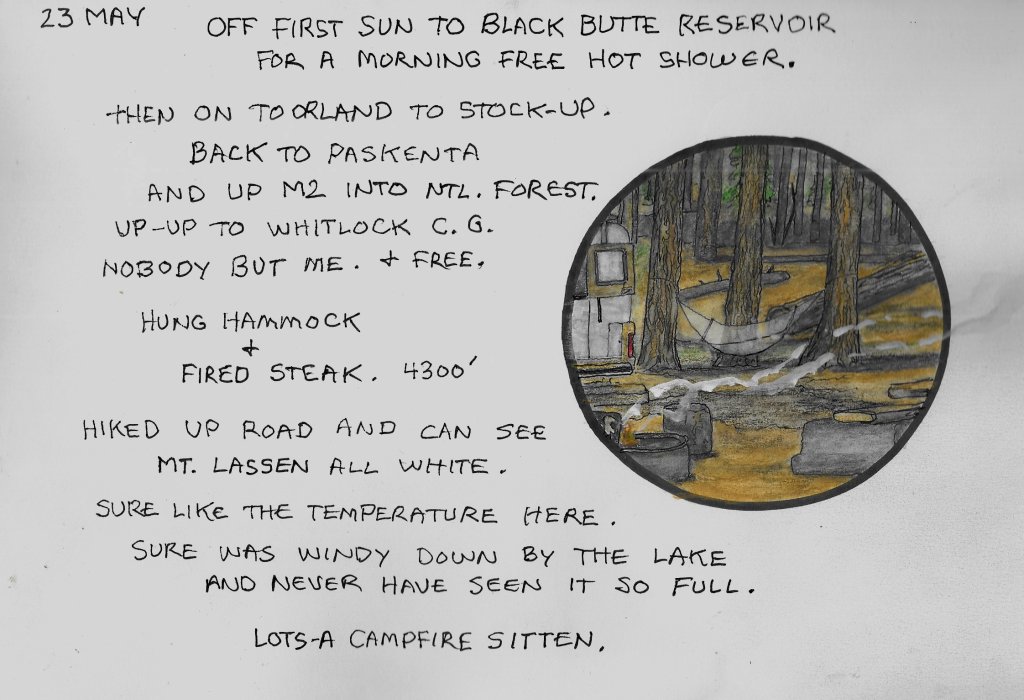 23 MAY
OFF FIRST SUN TO BLACK BUTTE RESERVOIR
FOR A MORNING FREE HOT SHOWER.
THEN ON TO ORLAND TO STOCK-UP.
BACK TO PASKENTA
AND UP M2 INTO NTL. FOREST.
UP-UP TO WHITLOCK C.G.
NOBODY BUT ME. + FREE.
HUNG HAMMOCK
+
FIRED STEAK. 4300'
HIKED UP ROAD AND CAN SEE
MT. LASSEN ALL WHITE.
SURE LIKE THE TEMPERATURE HERE.
SURE WAS WINDY DOWN BY THE LAKE
AND NEVER HAVE SEEN IT SO FULL.
LOTS-A CAMPFIRE SITTEN.